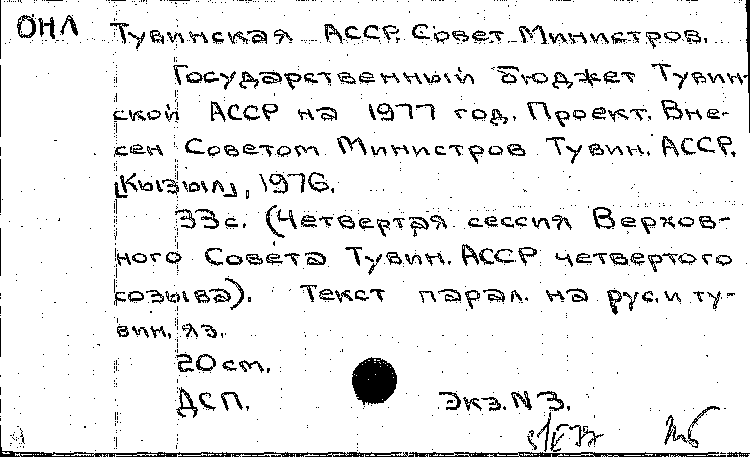 ОНЛ Тувинская АССР. Совет Министров.
Государственный бюджет Тувин-
ской АССР на 1977 год. Проект. Вне-
сен Советом Министров Тувин. АССР.
[Кызыл], 1976.
33 с. (Четвертая сессия Верхов-
ного Совета Тувин. АССР четвертого
созыва). Текст парал. на рус. и ту-
вин. яз.
20 cm.
ДСП. Экз. N 3.